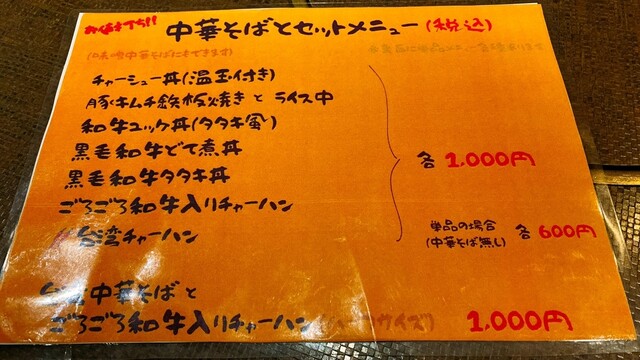 お値打ち!!
中華そばとセットメニュー(税込)
(味噌中華そばにもできます)
チャーシュー丼(温玉付き)
豚キムチ鉄板焼きと ライス中
和牛ユッケ丼(タタキ風)
黒毛和牛どて煮丼
各 1.000円
黒毛和牛タタキ丼
ごろごろ和牛入りチャーハン
台湾チャーハン
単品の場合
(中華そば無し) 各 600円
中華そばと
ごろごろ和牛入りチャーハン サイズ) 1.000円